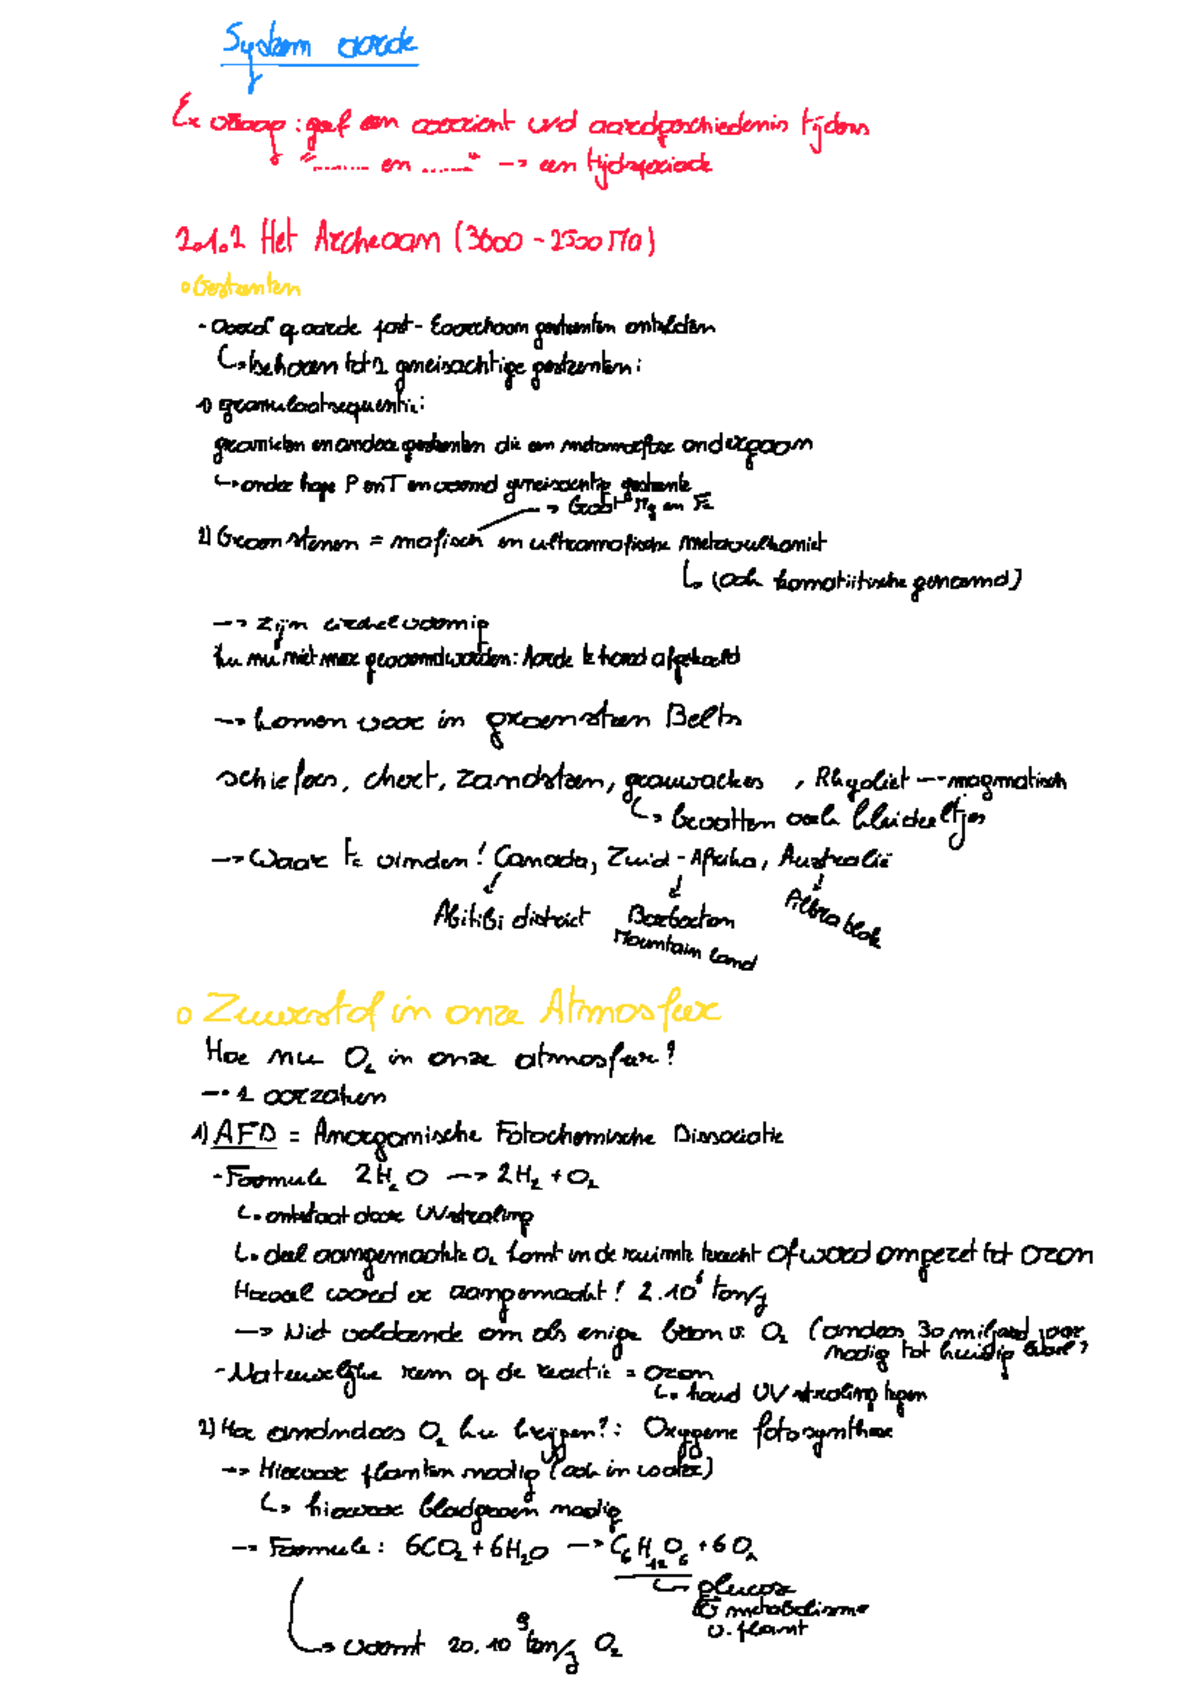 System aarde
Ex vraag: geef een overzicht vrd aardgeschiedenis tijdens
"........ en ......." -> een tijdsperiode
2.1.2 Het Archeaan (3600 - 2500 Ma)
Gesteenten
- Vanaf aarde post-Eoarchean gesteenten ontstaan
↳ behoren tot 2 gneisachtige gesteenten:
1) granulietsequentie:
granieten en andere gesteenten die een metamorfose ondergaan
↳ onder hoge P en T en vormd gneisachtig gesteente
-> Groot Mg en Fe
2) Groenstenen = mafisch en ultramafische metavulkaniet
↳ (ook komatiitische genoemd)
-> zijn cirkelvormig
ku nu niet meer gevormd worden: Aarde te hard afgekoeld
-> komen voor in groensteen Belts
schiefers, chert, zandsteen, grauwackes, Rhyoliet -- magmatisch
↳ bevatten ook kleideeltjes
-> Waar te vinden! Canada, Zuid-Afrika, Australië
Abitibi district Barberton Pilbra blok
Mountain land
o Zuurstof in onze Atmosfeer
Hoe nu O2 in onze atmosfeer?
-> 2 oorzaken
1) AFD = Anorganische Fotochemische Dissociatie
- Formule 2H2O -> 2H2 + O2
↳ ontstaat door UVstraling
↳ deel aangemaakte O2 komt in de ruimte terecht of word omgezet tot ozon
Hoeveel word er aangemaakt! 2.10^6 ton/j
-> Niet voldoende om als enige bron v. O2 (anders 30 miljard jaar
nodig tot huidig
- Natuurlijke rem op de reactie = ozon
↳ houd UV straling tegen
2) Hoe anders O2 ku krijgen?: Oxygene fotosynthese
-> Hiervoor planten nodig (ook in water)
↳ hiervoor bladgroen nodig
-> Formule: 6CO2 + 6H2O -> C6H12O6 + 6O2
↳ glucose
metabolisme
v. plant
↳ vormt 20.10^9 ton/j O2